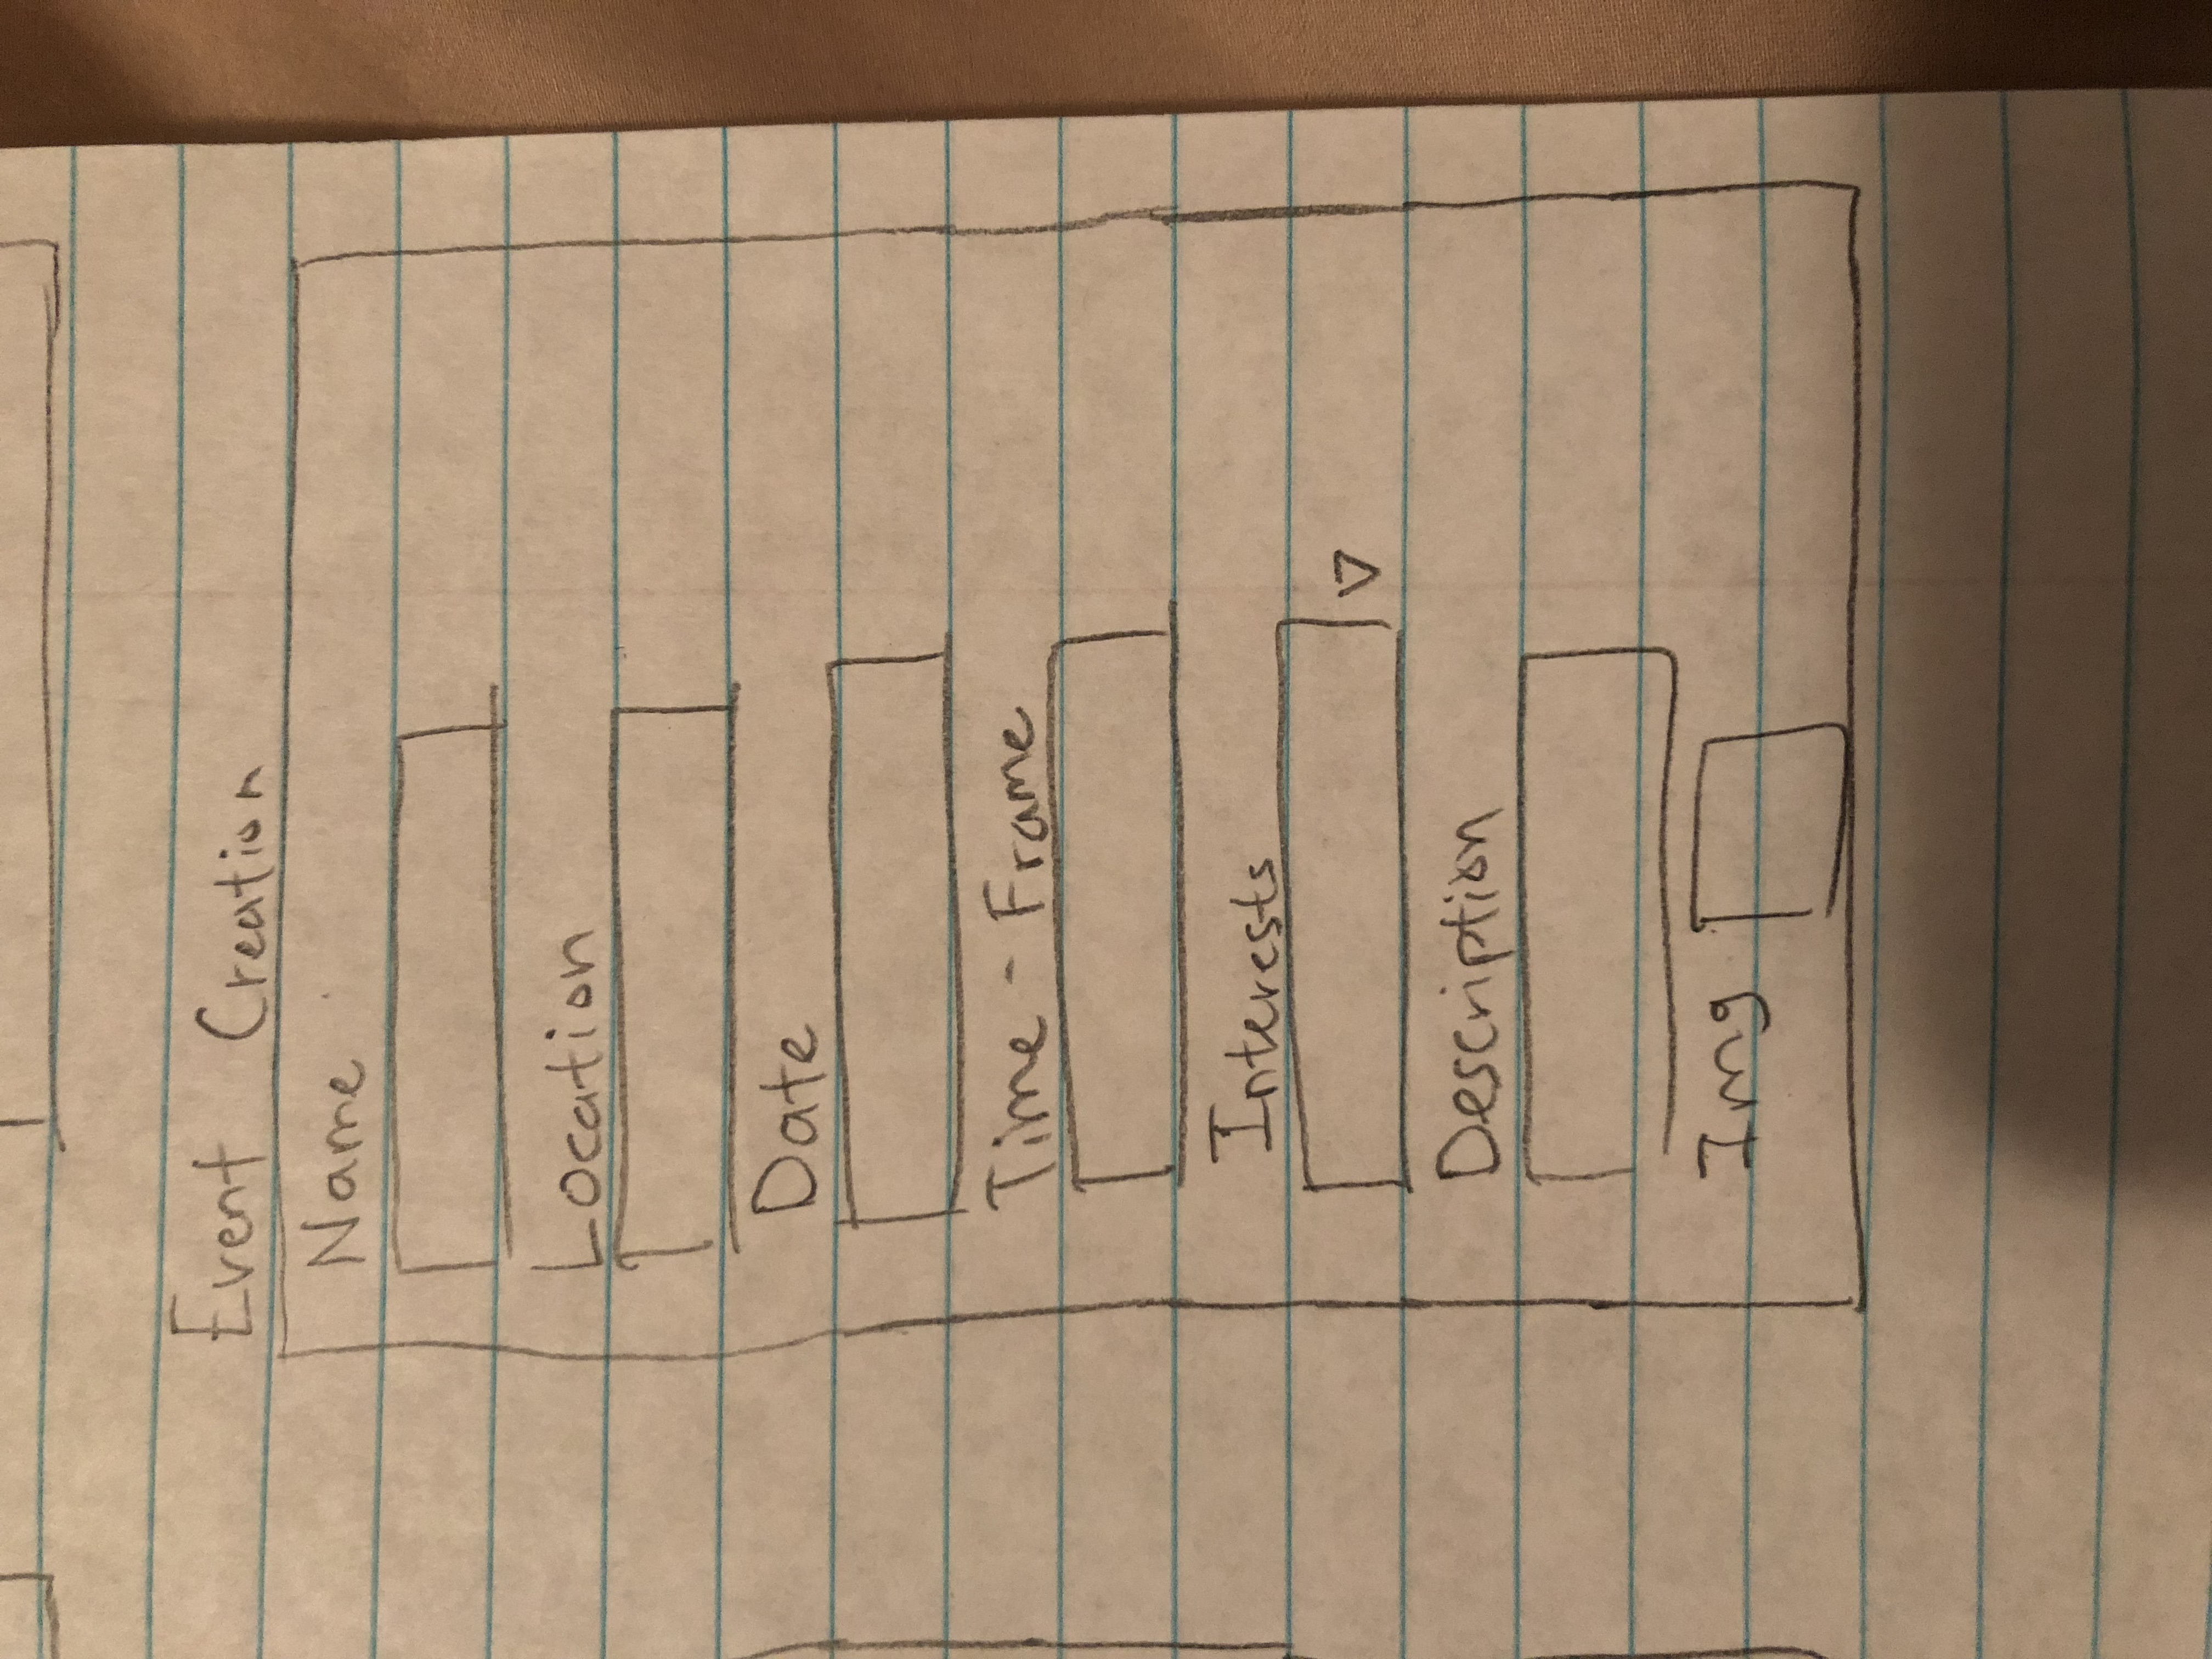 Event Creation
Name
Location
Date
Time - Frame
Interests
Description
Img